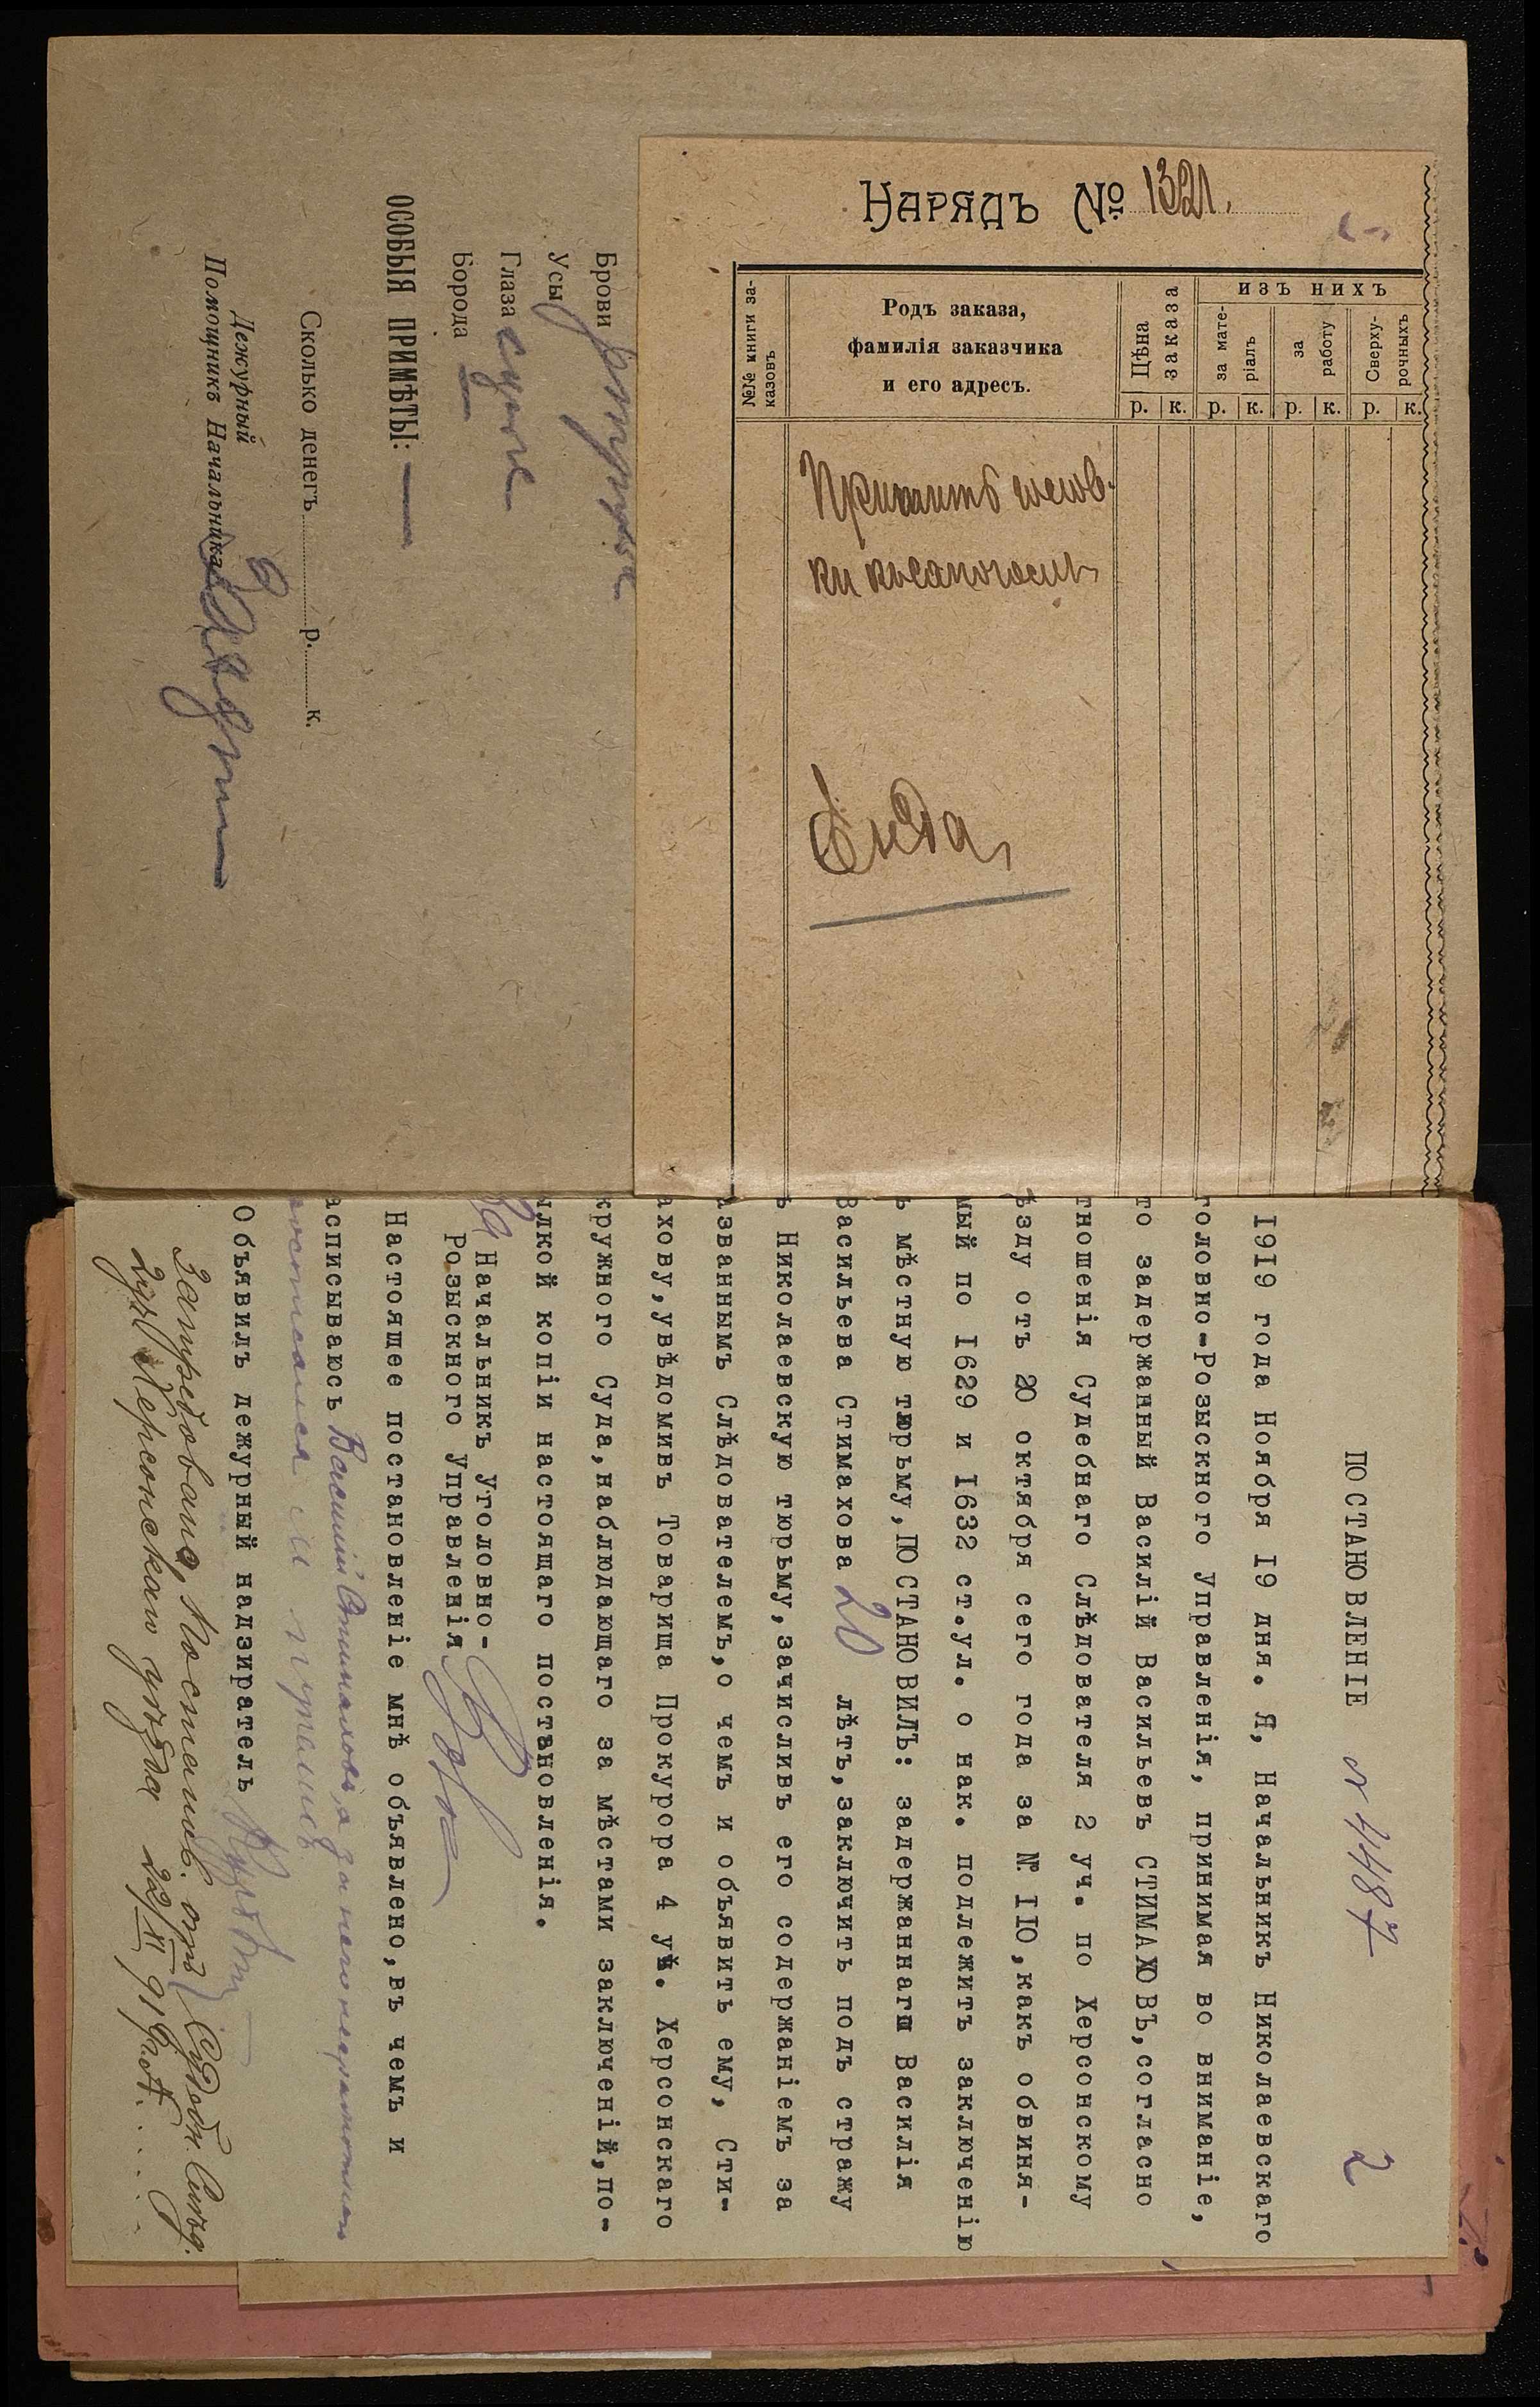 Нарядъ № 1321.
№№ книги за-
казовъ
Родъ заказа,
фамилія заказчика
и его адресъ.
Цѣна
заказа
изъ нихъ
за мате-
ріалъ
за
работу
Сверху-
рочныхъ
р. к. р. к. р. к. р. к.
Брови
Усы
Глаза
Борода
ОСОБЫЯ ПРИМѢТЫ:
Сколько денегъ р. к.
Дежурный
Помощникъ Начальника
ПОСТАНОВЛЕНІЕ № 4487 2
1919 года Ноября 19 дня. Я, Начальникъ Николаевскаго
головно-Розыскного Управленія, принимая во вниманіе,
то задержанный Василій Васильевъ СТИМАХОВЪ, согласно
тношенія Судебнаго Слѣдователя 2 уч. по Херсонскому
ѣзду отъ 20 октября сего года за № 110, какъ обвиня-
мый по 1629 и 1632 ст. ул. о нак. подлежитъ заключенію
ъ мѣстную тюрьму, ПОСТАНОВИЛЪ: задержаннаго Василія
Васильева Стимахова 20 лѣтъ, заключить подъ стражу
ъ Николаевскую тюрьму, зачисливъ его содержаніемъ за
азваннымъ Слѣдователемъ, о чемъ и объявить ему, Сти-
ахову, увѣдомивъ Товарища Прокурора 4 уч. Херсонскаго
кружного Суда, наблюдающаго за мѣстами заключеній, по-
ылкой копіи настоящаго постановленія.
За Начальникъ Уголовно-
Розыскного Управленія
Настоящее постановленіе мнѣ объявлено, въ чемъ и
асписываюсь Василий Стимаховъ, а за него неграмотнаго
Объявилъ дежурный надзиратель
Затребовано Постанов. отъ Судебн. Слѣд.
2 уч. Херсонскаго уѣзда 22/XI 919 год.